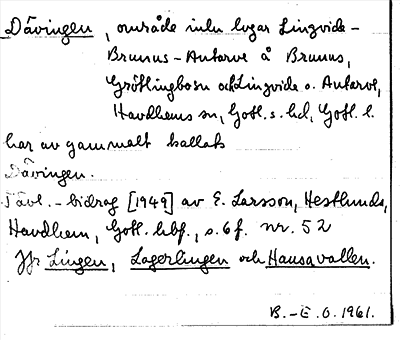 Dävingen, område inle lygar Lingvide-
Brunns-Autarve å Brunns,
Grötlingbosn och Lingvide o. Autarve,
Havdhems sn, Gotl. s. hd, Gotl. l.
har av gammalt kallats
Dävingen.
Tävl.-bidrag [1949] av E. Larsson, Hestlunds,
Havdhem, Gotl. hbf., s. 6 f. nr. 52
Jfr Lingen, Lagerlingen och Hausavallen.
B.-E. O. 1961.